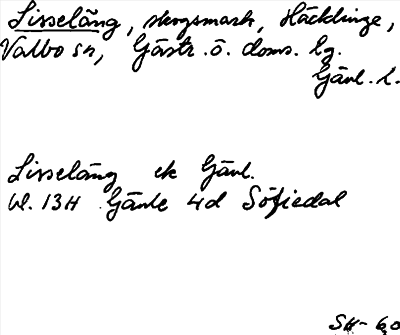 Lisseläng, skogsmark, Häcklinge,
Valbo sn, Gästr. ö. doms. lg.
Gävl. l.
Lisseläng ek Gävl.
bl. 13H Gävle 4d Sofiedal
SH-60